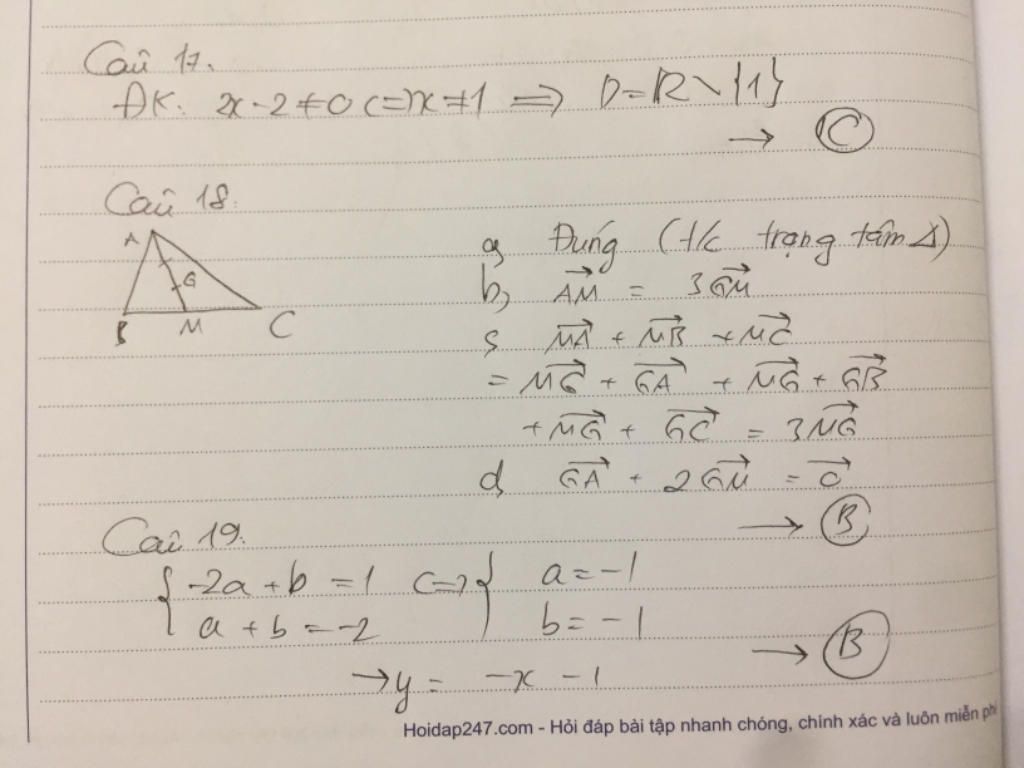 Câu 17.
ĐK: 2x - 2 ≠ 0 <=> x ≠ 1 => D = R \ {1}
→ C
Câu 18:
A
G
B M C
a, Đúng (t/c trọng tâm Δ)
b, \vec{AM} = 3\vec{GM}
c, \vec{MA} + \vec{MB} + \vec{MC}
= \vec{MG} + \vec{GA} + \vec{MG} + \vec{GB}
+ \vec{MG} + \vec{GC} = 3\vec{MG}
d, \vec{GA} + 2\vec{GM} = \vec{0}
→ B
Câu 19:
{ -2a + b = 1 <=> { a = -1
a + b = -2 b = -1
→ B
→ y = -x - 1
Hoidap247.com - Hỏi đáp bài tập nhanh chóng, chính xác và luôn miễn phí